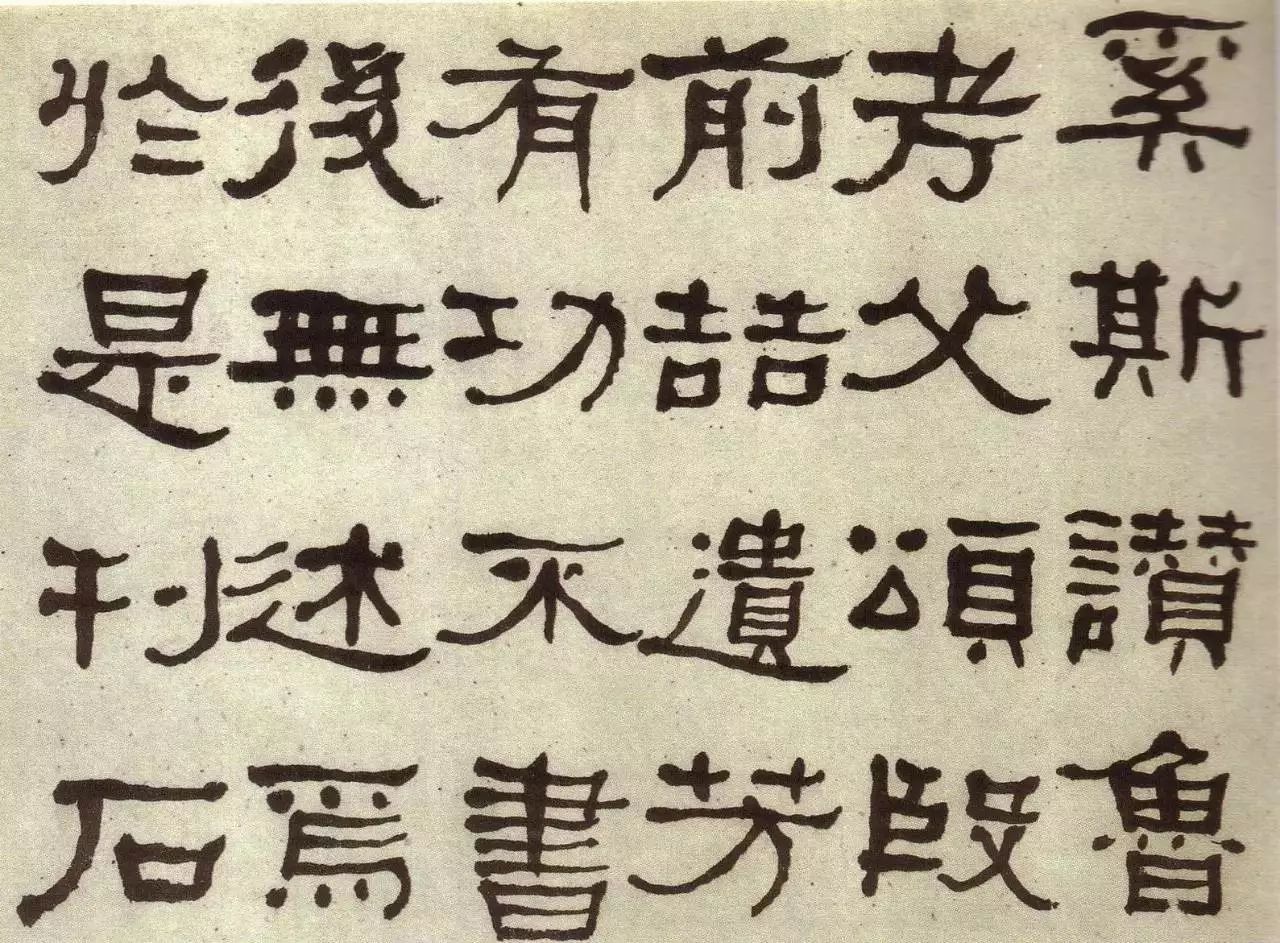 奚斯讃魯
考父頌殷
前喆遺芳
有功不書
後無述焉
於是刊石